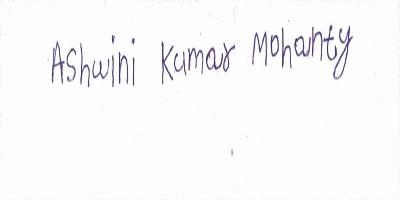 Ashwini Kumar Mohanty